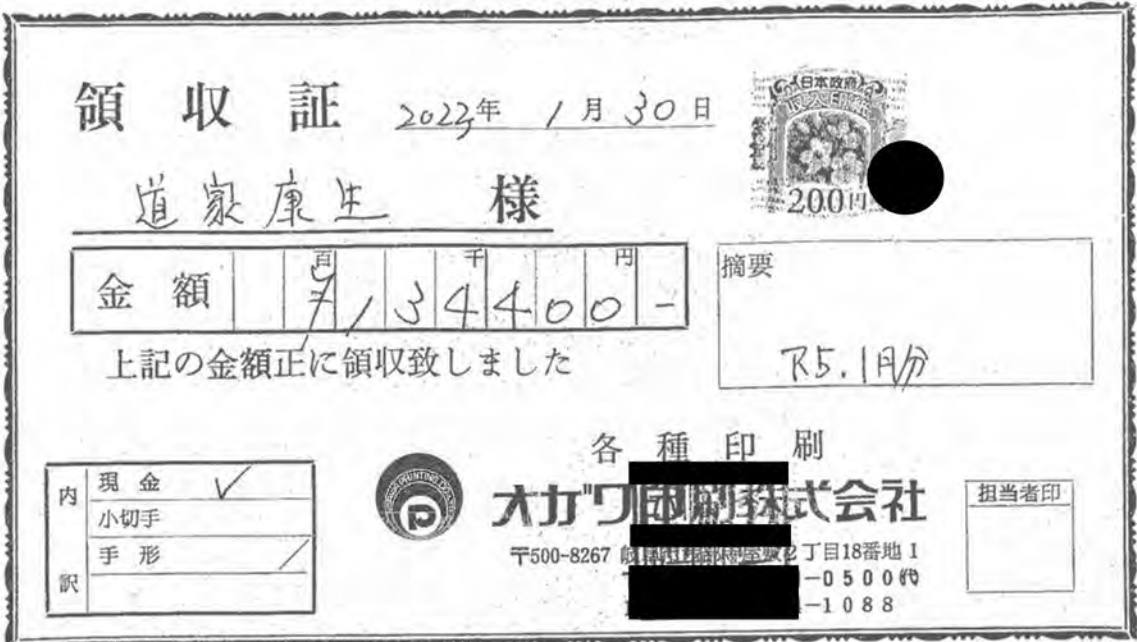 領収証 2023年 1月30日
日本政府
収入印紙
200円
道家康生 様
金額 百 千 円
¥134400-
上記の金額正に領収致しました
摘要
R5.1月分
内訳
現金 ✓
小切手
手形
各種印刷
オガワ印刷株式会社
〒500-8267 2丁目18番地1
-0500代
-1088
担当者印